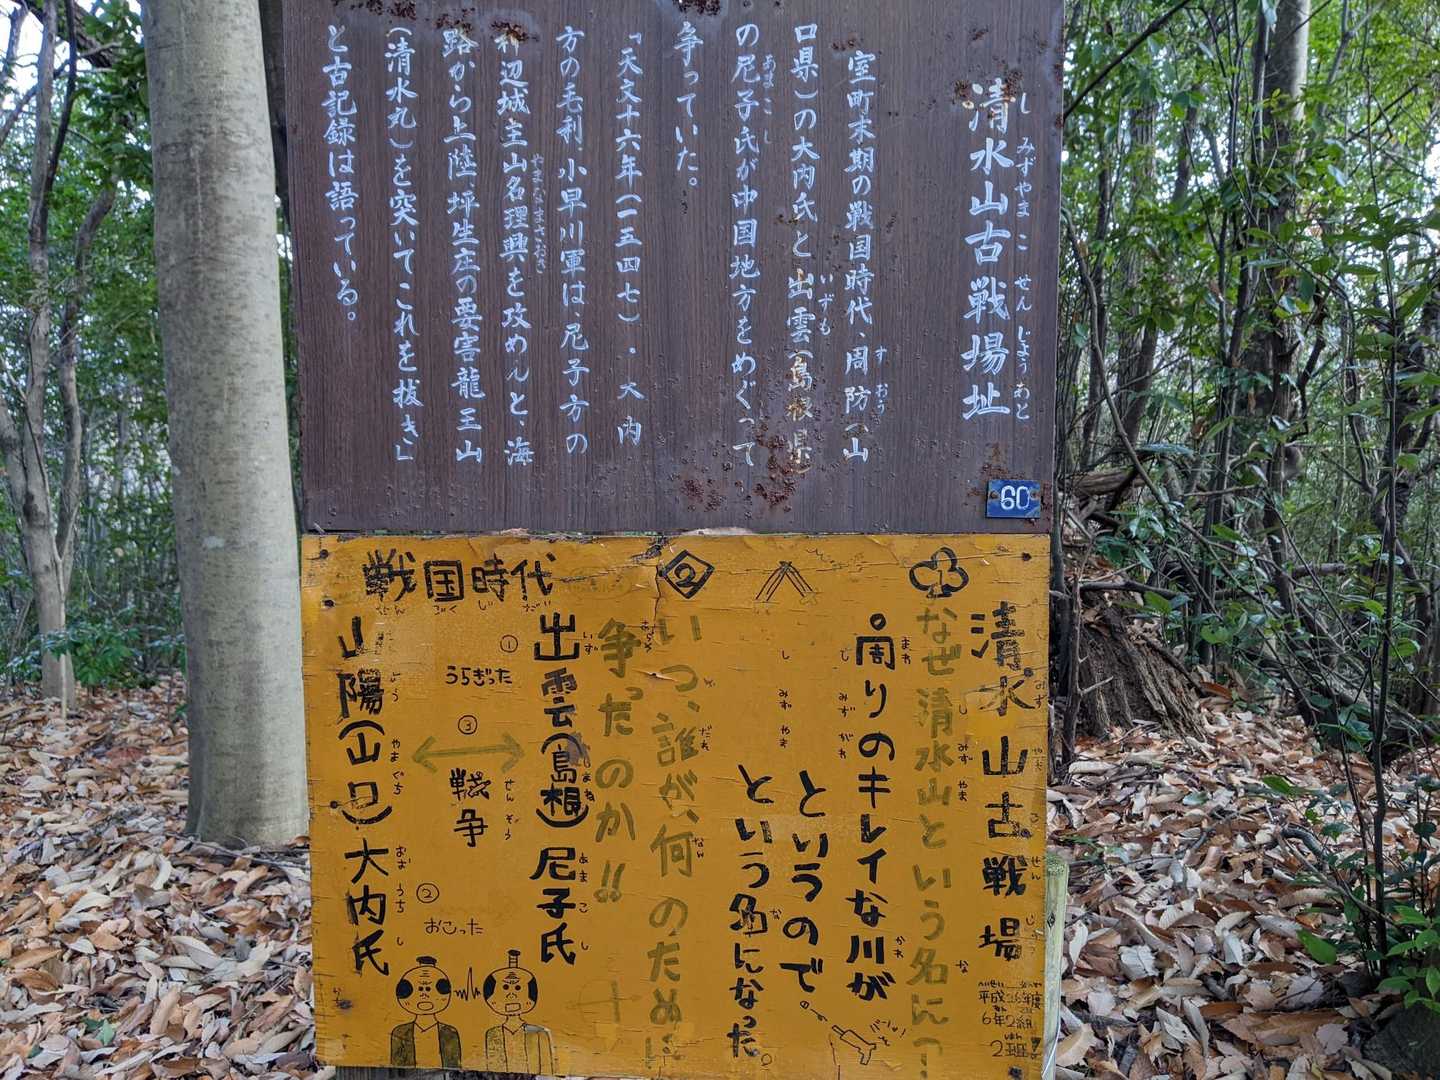 清水山古戦場址
しみずやまこせんじょうあと
室町末期の戦国時代、周防(山
すおう
口県)の大内氏と出雲(島根県)
いずも
の尼子氏が中国地方をめぐって
あまこし
争っていた。
「天文十六年(一五四七)・大内
方の毛利 小早川軍は、尼子方の
神辺城主山名理興を攻めんと、海
やまなまさおき
路から上陸、坪生庄の要害龍王山
(清水丸)を突いてこれを抜き」
と古記録は語っている。
60
清水山古戦場
平成26年度
6年2組
2班
なぜ清水山という名に?
周りのキレイな川が
というので
という名になった。
②
いつ、誰が、何のために
争ったのか!!
戦国時代
せんごくじだい
出雲(島根)尼子氏
①
うらぎった
③
戦争
せんそう
②
おこった
山陽(山口)大内氏